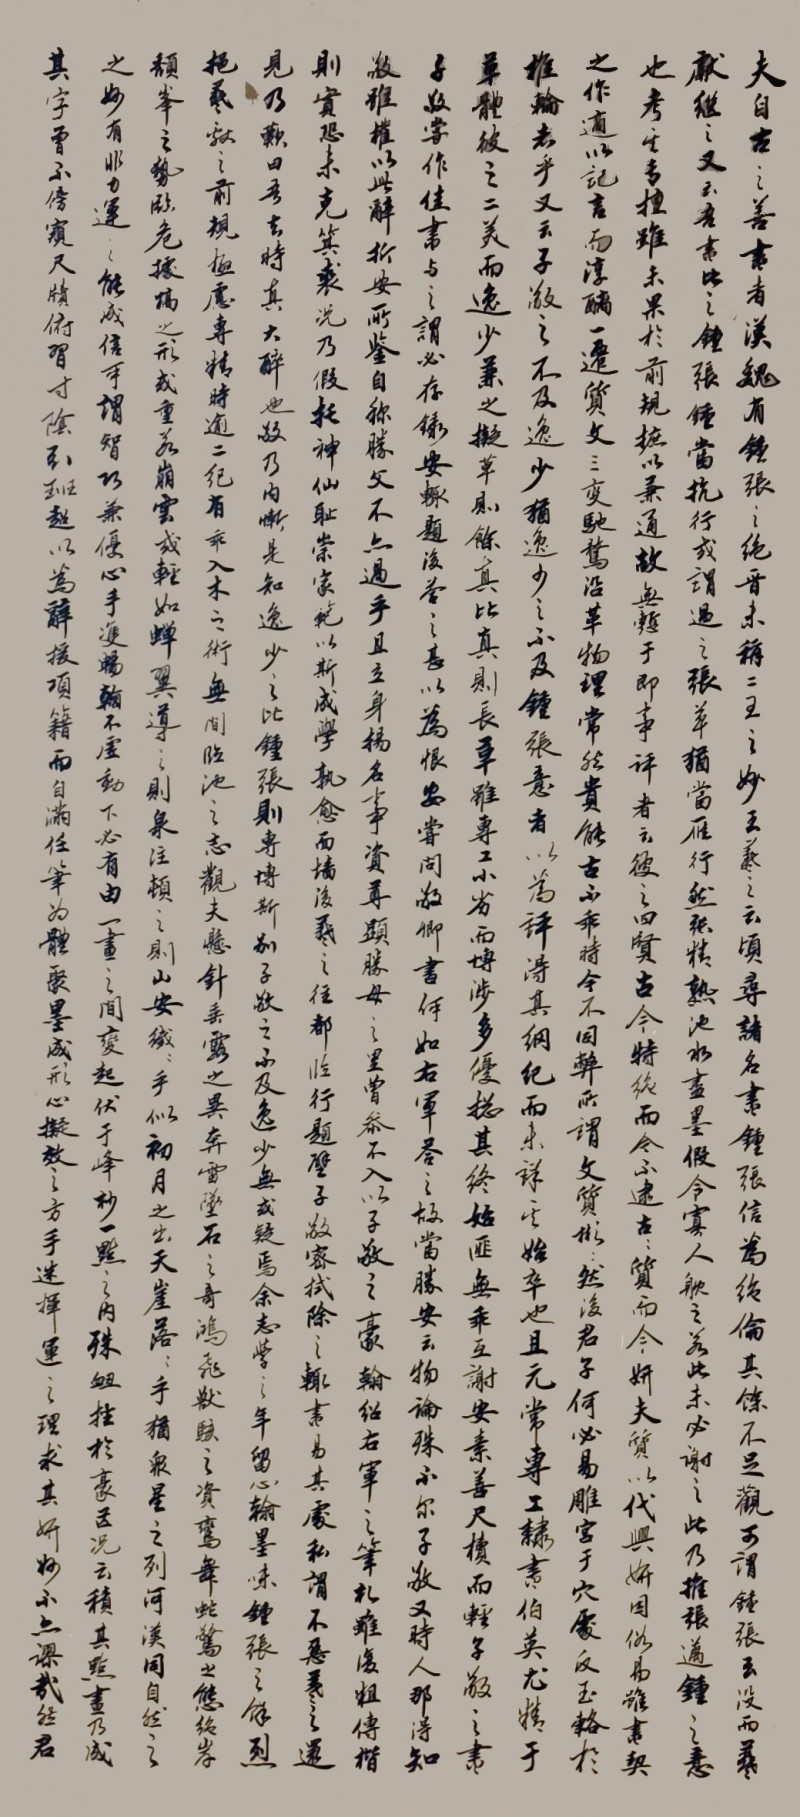 夫自古之善書者漢魏有鍾張之絕晉末稱二王之妙王羲之云頃尋諸名書鍾張信為絕倫其餘不足觀可謂鍾張云沒而羲
獻繼之又云吾書比之鍾張鍾當抗行或謂過之張草猶當雁行然張精熟池水盡墨假令寡人耽之若此未必謝之此乃推張邁鍾之意
也考其專擅雖未果於前規摭以兼通故無慙于即事評者云彼之四賢古今特絕而今不逮古古質而今妍夫質以代興妍因俗易雖書契
之作適以記言而淳醨一遷質文三變馳騖沿革物理常然貴能古不乖時今不同弊所謂文質彬彬然後君子何必易雕宮于穴處反玉輅於
椎輪者乎又云子敬之不及逸少猶逸少之不及鍾張意者以為評得其綱紀而未詳其始卒也且元常專工隸書伯英尤精于
草體彼之二美而逸少兼之擬草則餘真比真則長草雖專工小劣而博涉多優揔其終始匪無乖互謝安素善尺牘而輕子敬之書
子敬嘗作佳書與之謂必存錄安輒題後答之甚以為恨安嘗問敬卿書何如右軍答之故當勝安云物論殊不尔子敬又時人那得知
敬雖權以此辭折安所鑒自称勝父不亦過乎且立身揚名事資尊顯勝母之里曾參不入以子敬之豪翰紹右軍之筆札雖復粗傳楷
則實恐未克箕裘況乃假托神仙耻崇家範以斯成學孰愈面墻後羲之往都臨行題壁子敬密拭除之輒書易其處私謂不惡羲之還
見乃歎曰吾去時真大醉也敬乃內慚是知逸少之比鍾張則專博斯別子敬之不及逸少無或疑焉余志學之年留心翰墨味鍾張之餘烈
挹羲獻之前規極慮專精時逾二紀有乖入木之術無間臨池之志觀夫懸針垂露之異奔雷墜石之奇鴻飛獸駭之資鸞舞蛇驚之態絕岸
頹峯之勢臨危據槁之形或重若崩雲或輕如蟬翼導之則泉注頓之則山安纖纖乎似初月之出天崖落落乎猶眾星之列河漢同自然之
之妙有非力運之能成信可謂智巧兼優心手雙暢翰不虛動下必有由一畫之間變起伏于峰杪一點之內殊衄挫於豪芒況云積其點畫乃成
其字曾不傍窺尺牘俯習寸陰引班超以為辭援項籍而自滿任筆為體聚墨成形心擬效之方手迷揮運之理求其妍妙不亦謬哉然君